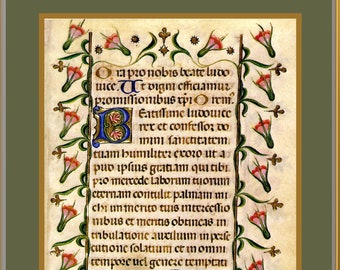 Ora pro nobis beate ludo
uice. Ut digni efficiamur
promissionibus xpi Orem⁹.
Beatissime ludouice
rex et confessor do
mini sanctitatem
tuam humiliter exoro ut a
pud ipsius gratiam qui tibi
pro mercede laborum tuorum
eternam contulit palmam mi
chi inimico tuis intercessio
nibus et meritis obtineas in
tribulatione auxilium in perse
cutione solatium et in omni
tempore uel genere temptati